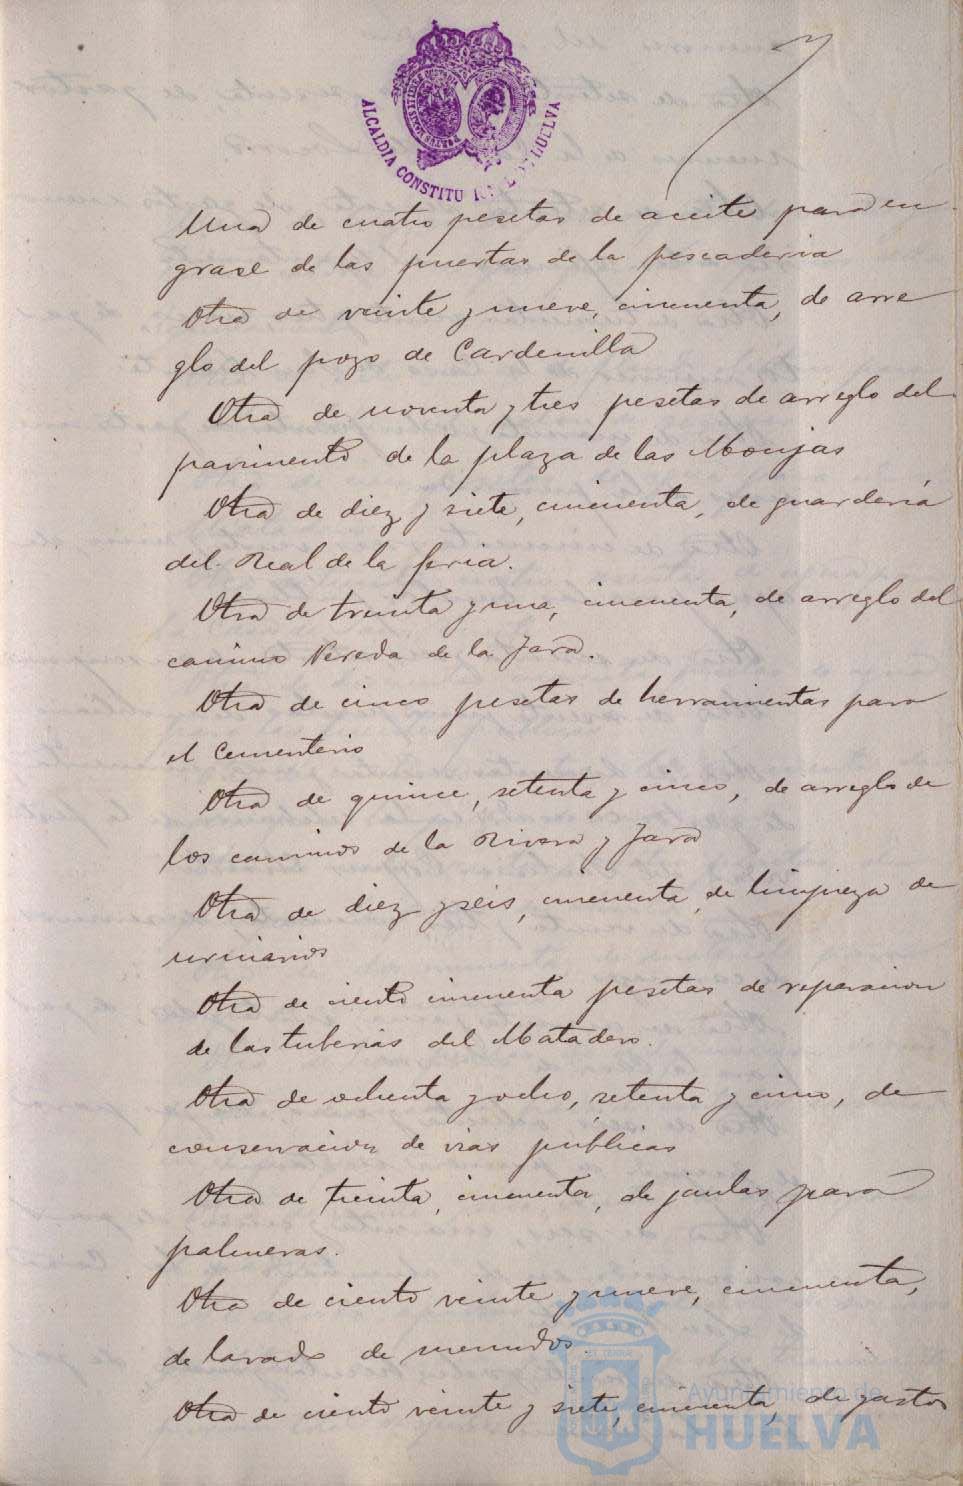 ALCALDIA CONSTITU HUELVA
7
Una de cuatro pesetas de aceite para en
grase de las puertas de la pescaderia
Otra de veinte y nueve, cincuenta, de arre
glo del pozo de Cardenilla
Otra de noventa y tres pesetas de arreglo del
pavimento de la plaza de las Monjas
Otra de diez y siete, cincuenta, de guardería
del Real de la feria.
Otra de treinta y una, cincuenta, de arreglo del
camino Vereda de la Jara.
Otra de cinco pesetas de herramientas para
el Cementerio
Otra de quince, setenta y cinco, de arreglo de
los caminos de la Rivera y Jara
Otra de diez y seis, cincuenta, de limpieza de
urinarios
Otra de ciento cincuenta pesetas de reparacion
de las tuberias del Matadero.
Otra de ochenta y ocho, setenta y cinco, de
conservacion de vias públicas
Otra de treinta, cincuenta, de jaulas para
palmeras.
Otra de ciento veinte y nueve, cincuenta,
de lavado de menudos.
Otra de ciento veinte y siete, cincuenta, de gastos
Ayuntamiento de
HUELVA